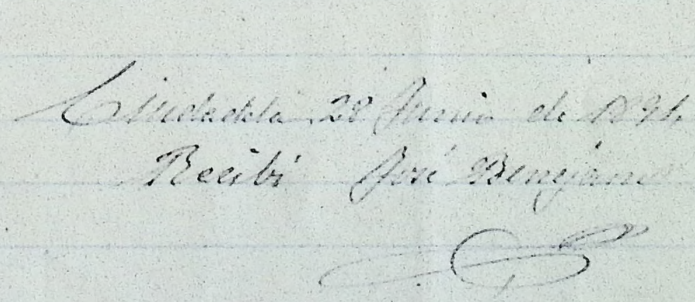 Ciudadela 28 Junio de 1894
Recibí José Benejam